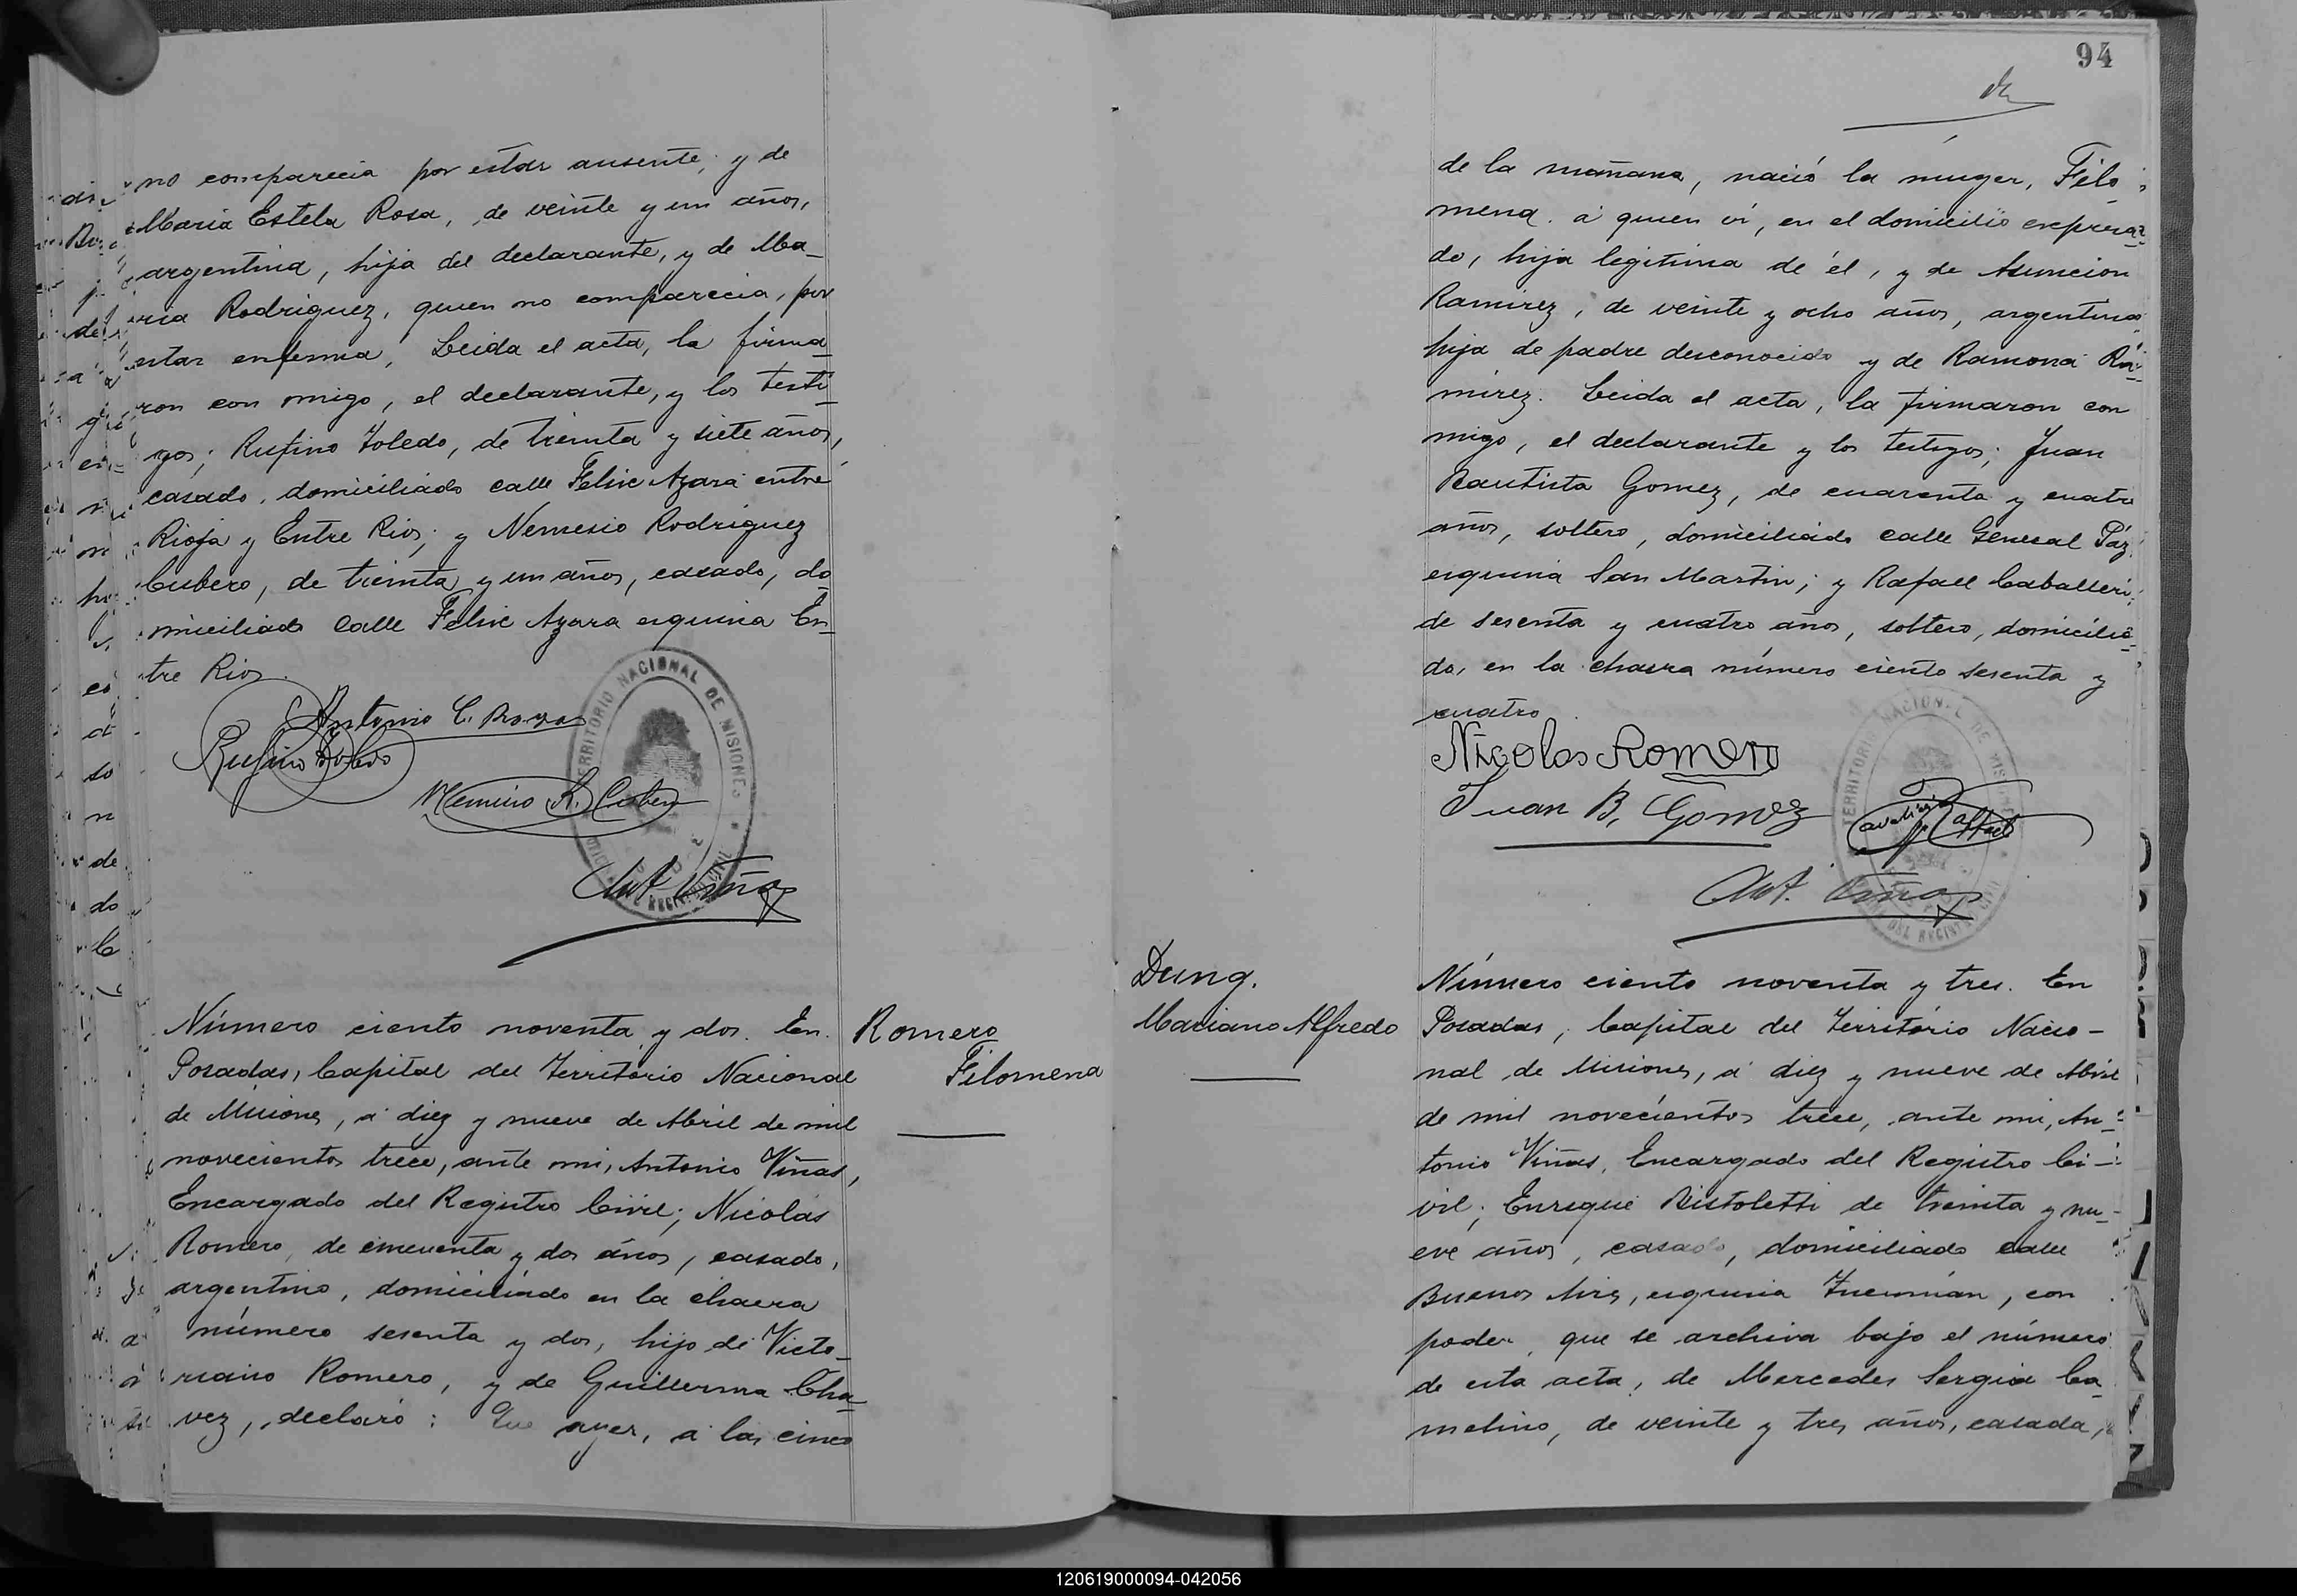 no comparecia por estar ausente; y de
Maria Estela Rosa, de veinte y un años,
argentina, hija del declarante, y de Ma-
ria Rodriguez, quien no comparecia, por
estar enferma, Leida el acta, la firma-
ron con migo, el declarante, y los testi-
gos; Rufino Toledo, de treinta y siete años,
casado, domiciliado calle Felix Azara entre
Rioja y Entre Rios; y Nemesio Rodriguez
Cubero, de treinta y un años, casado, do-
miciliado calle Felix Azara esquina En-
tre Rios.
Antonio C.
Rufino Toledo
Nemesio R. Cubero
TERRITORIO NACIONAL DE MISIONES
Ant. Viñas
Número ciento noventa y dos. En
Posadas, Capital del Territorio Nacional
de Misiones, á diez y nueve de Abril de mil
novecientos trece, ante mi, Antonio Viñas,
Encargado del Registro Civil; Nicolás
Romero, de cincuenta y dos años, casado,
argentino, domiciliado en la chacra
número sesenta y dos, hijo de Victo-
riano Romero, y de Guillerma Cha-
vez, declaró: Que ayer, á las cinco
Romero
Filomena
94
de la mañana, nació la muger, Filo-
mena. á quien vi, en el domicilio expresa-
do, hija legitima de él, y de Asuncion
Ramirez, de veinte y ocho años, argentina
hija de padre desconocido y de Ramona Ra-
mirez. Leida el acta, la firmaron con
migo, el declarante y los testigos; Juan
Bautista Gomez, de cuarenta y cuatro
años, soltero, domiciliado calle General Paz
esquina San Martin; y Rafael Caballeri,
de sesenta y cuatro años, soltero, domicilia-
do, en la chacra número ciento sesenta y
cuatro.
Nicolas Romero
Juan B. Gomez
Rafael
TERRITORIO NACIONAL DE MISIONES
DEL REGISTRO CIVIL
Ant. Viñas
Dung.
Mariano Alfredo
Número ciento noventa y tres. En
Posadas, Capital del Territorio Nacio-
nal de Misiones, á diez y nueve de Abril
de mil novecientos trece, ante mi, An-
tonio Viñas, Encargado del Registro Ci-
vil; Enrique Bistoletti de treinta y nu-
eve años, casado, domiciliado calle
Buenos Aires, esquina Tucumán, con
poder, que se archiva bajo el número
de esta acta, de Mercedes Sergia Ca-
melino, de veinte y tres años, casada,
120619000094-042056